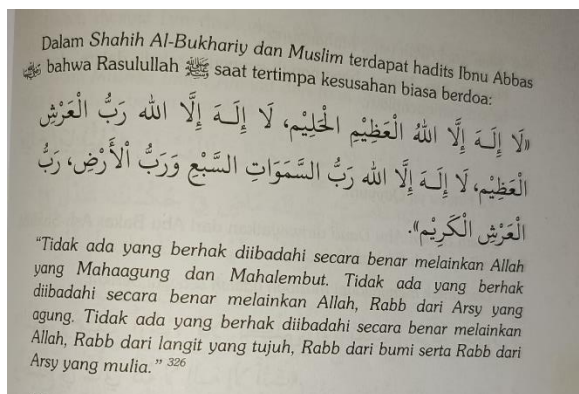 Dalam Shahih Al-Bukhariy dan Muslim terdapat hadits Ibnu Abbas
bahwa Rasulullah ﷺ saat tertimpa kesusahan biasa berdoa:
«لَا إِلَـهَ إِلَّا اللهُ الْعَظِيْمِ الْحَلِيْمِ، لَا إِلَـهَ إِلَّا الله رَبُّ الْعَرْشِ
الْعَظِيْمِ، لَا إِلَـهَ إِلَّا الله رَبُّ السَّمَوَاتِ السَّبْعِ وَرَبُّ الْأَرْضِ، رَبُّ
الْعَرْشِ الْكَرِيْمِ».
“Tidak ada yang berhak diibadahi secara benar melainkan Allah
yang Mahaagung dan Mahalembut. Tidak ada yang berhak
diibadahi secara benar melainkan Allah, Rabb dari Arsy yang
agung. Tidak ada yang berhak diibadahi secara benar melainkan
Allah, Rabb dari langit yang tujuh, Rabb dari bumi serta Rabb dari
Arsy yang mulia.” 326